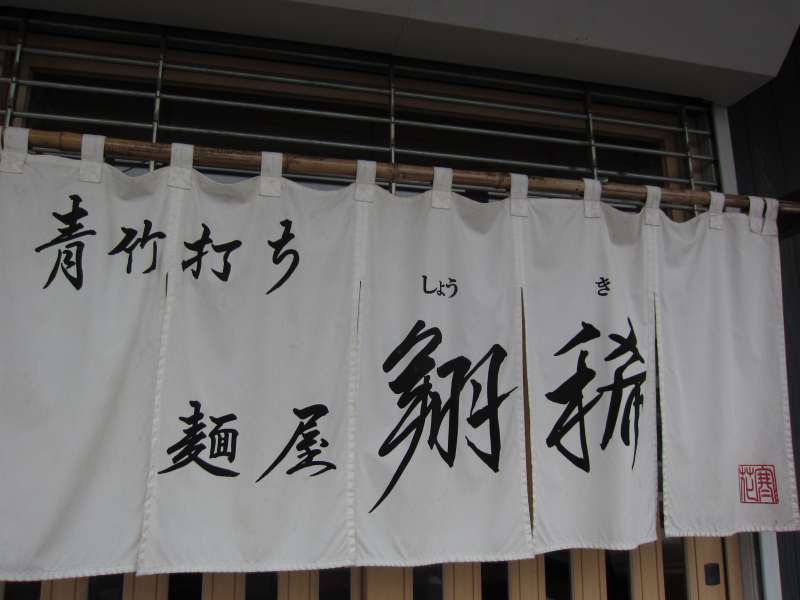 青竹打ち
麺屋
しょう き
翔稀
寒花